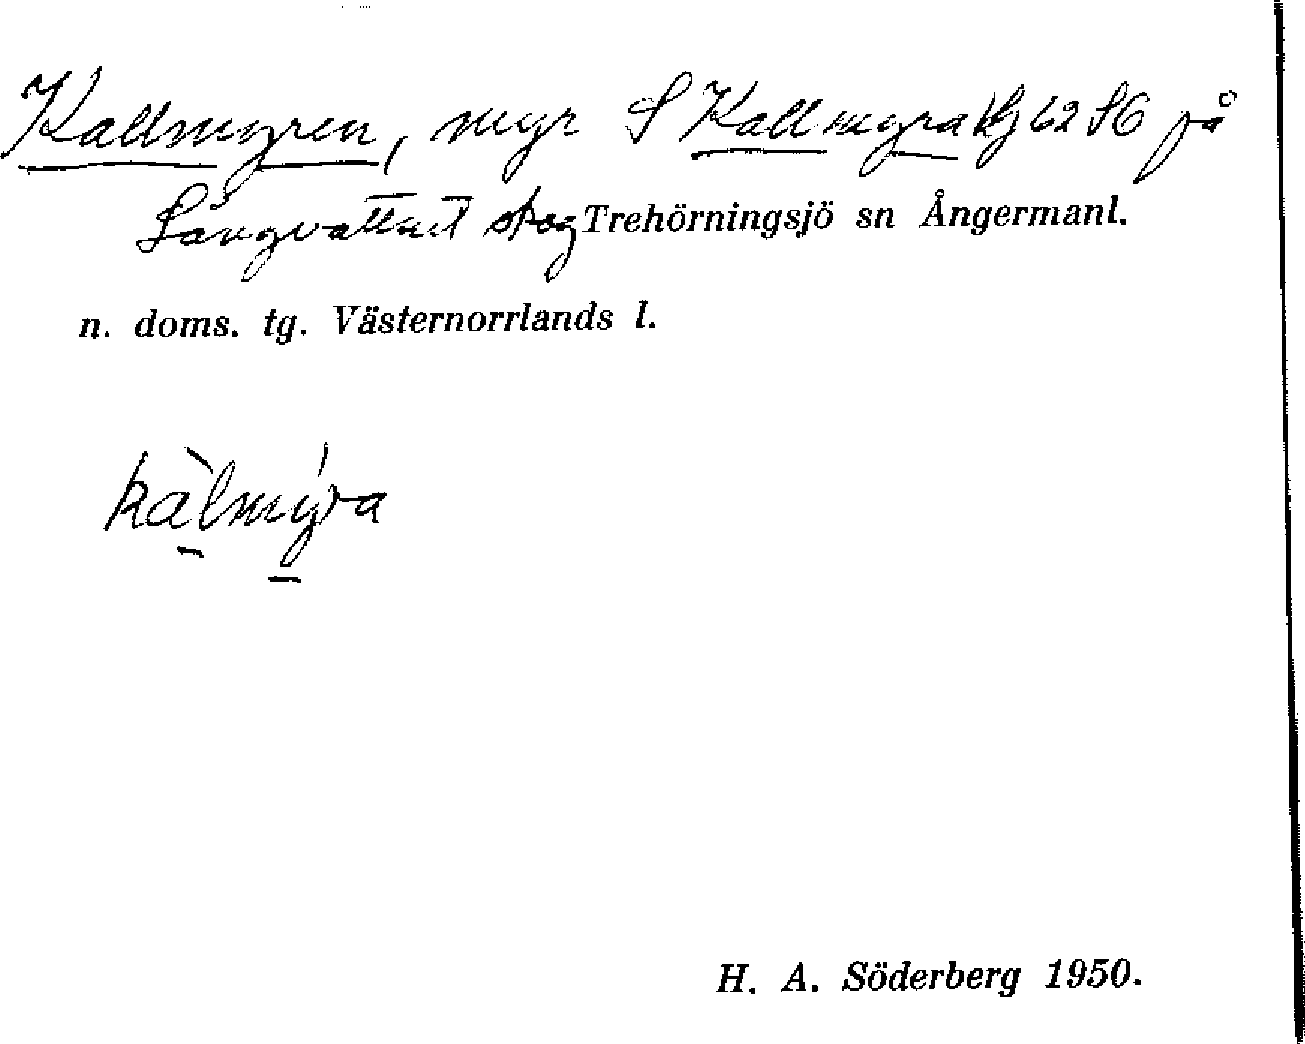 Kallmyren, myr S Kallmyra kj 62 SG på
Långvattnet skog Trehörningsjö sn Ångermanl.
n. doms. tg. Västernorrlands l.
kàlmýra
H. A. Söderberg 1950.